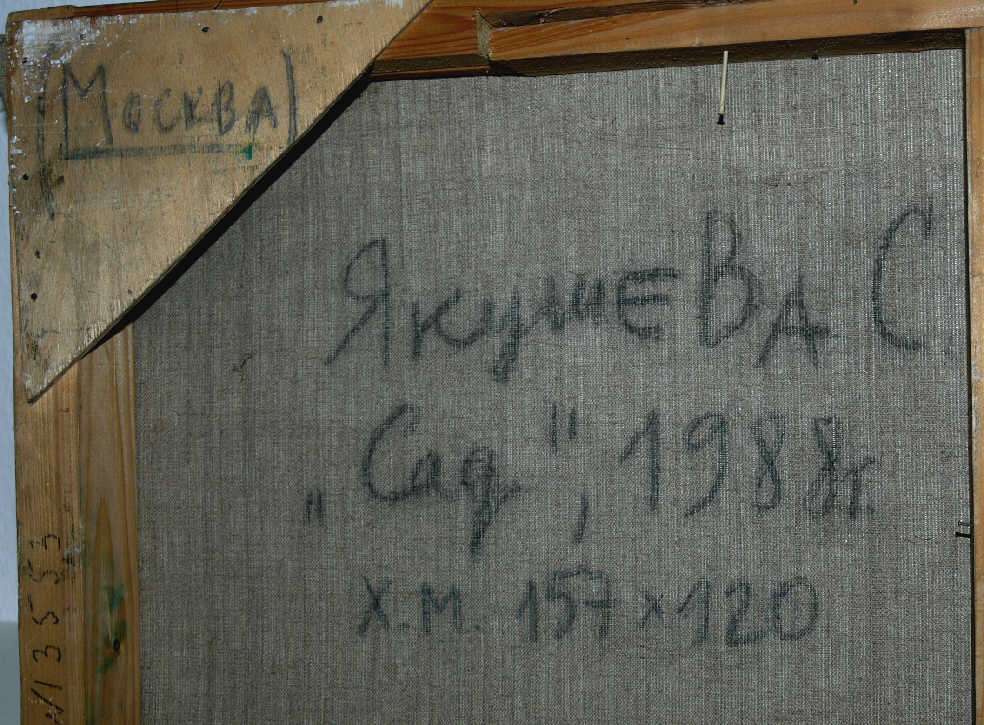 (Москва)
ЯкушЕВА С
„Сад", 1988г.
Х.М. 157×120